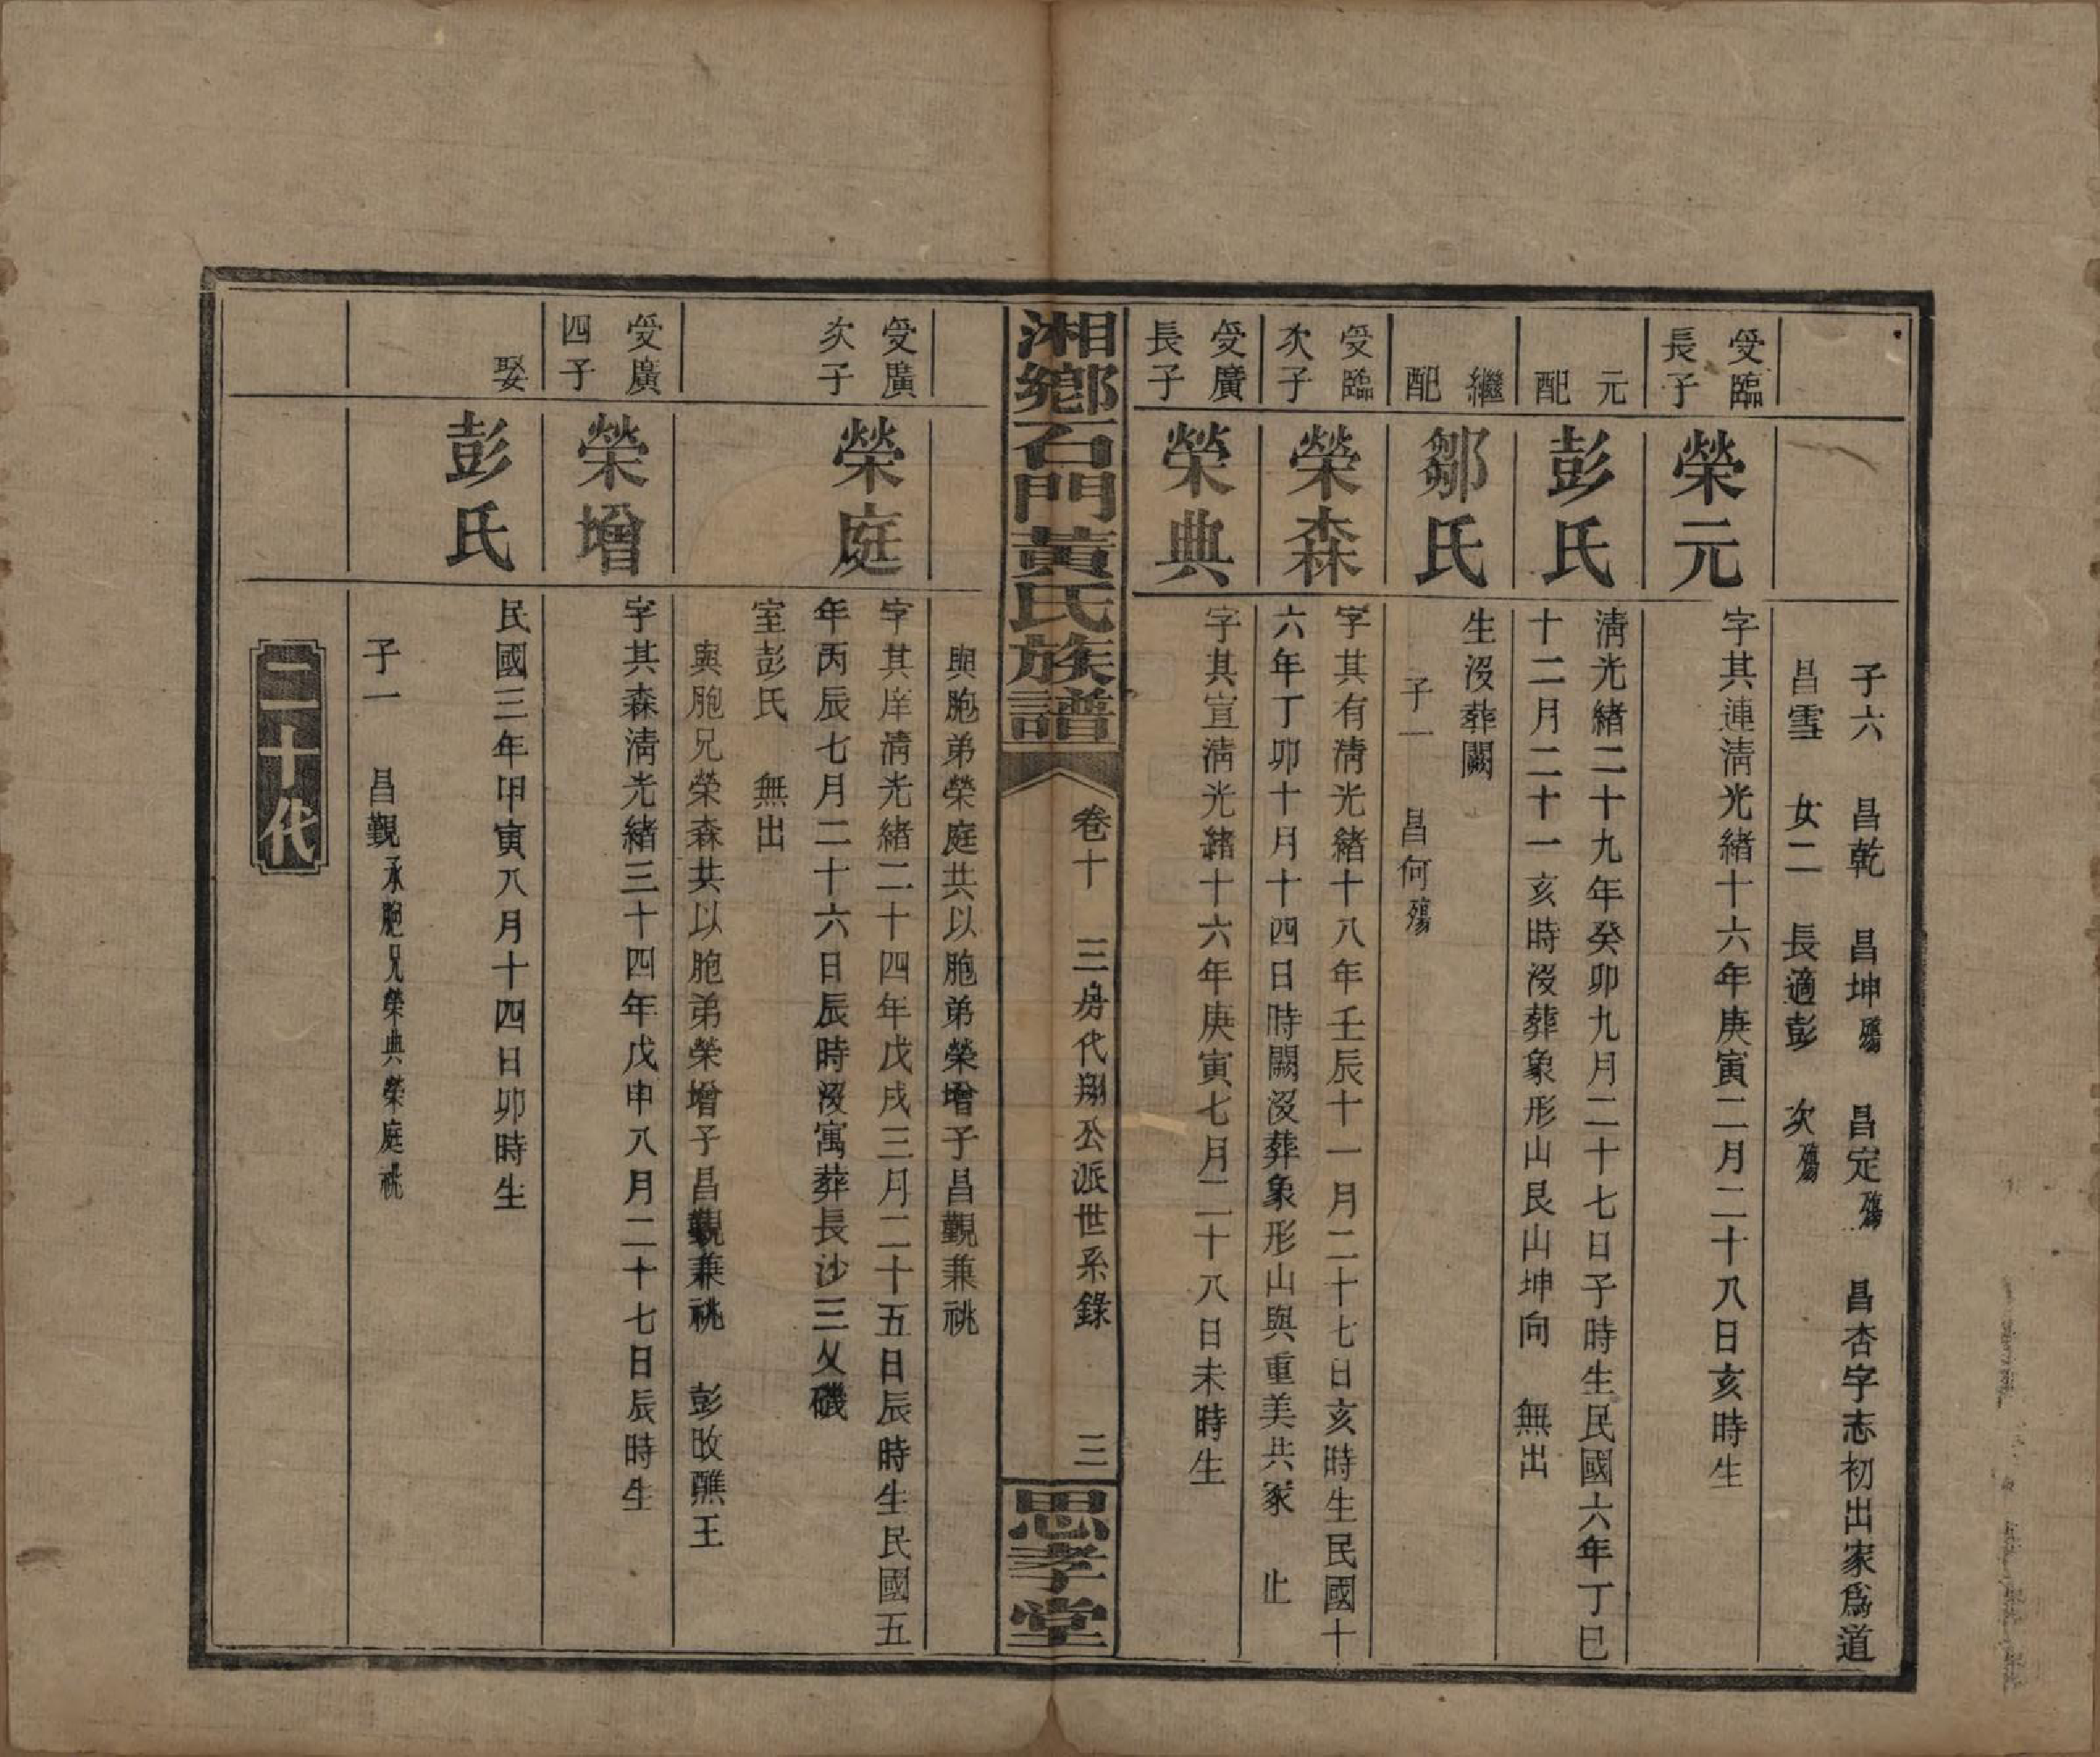 子六　昌乾　昌坤殤　昌定殤　昌杏字志初出家爲道
昌雪　女二　長適彭　次殤
受臨長子
榮元
字其連淸光緒十六年庚寅二月二十八日亥時生
元配
彭氏
淸光緒二十九年癸卯九月二十七日子時生民國六年丁巳
十二月二十一亥時沒葬象形山艮山坤向　無出
繼配
鄒氏
生沒葬闕
子一　昌何殤
受臨次子
榮森
字其有淸光緒十八年壬辰十一月二十七日亥時生民國十
六年丁卯十月十四日時闕沒葬象形山與重美共冢　止
受廣長子
榮典
字其宣淸光緒十六年庚寅七月二十八日未時生
湘鄉石門黃氏族譜
卷十　三房代翔公派世系錄　三
思孝堂
與胞弟榮庭共以胞弟榮增子昌觀兼祧
受廣次子
榮庭
字其庠淸光緒二十四年戊戌三月二十五日辰時生民國五
年丙辰七月二十六日辰時沒寓葬長沙三乂磯
室彭氏　無出
與胞兄榮森共以胞弟榮增子昌觀兼祧　彭改醮王
受廣四子
榮增
字其森淸光緒三十四年戊申八月二十七日辰時生
娶
彭氏
民國三年甲寅八月十四日卯時生
子一　昌觀承胞兄榮典榮庭祧
二十代